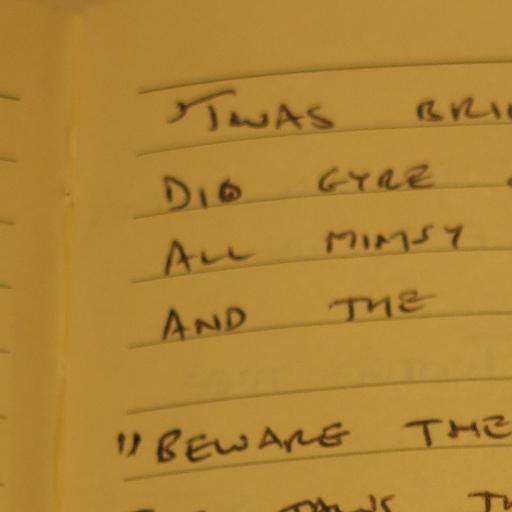 'TWAS BRI
DID GYRE
ALL MIMSY
AND THE
"BEWARE THE
JAWS TH